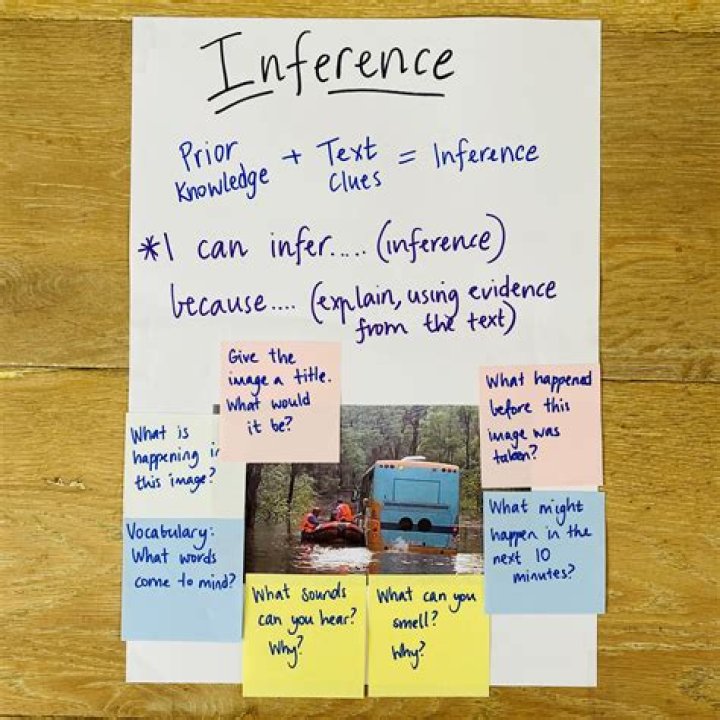 Inference
Prior
Knowledge + Text
Clues = Inference
*I can infer..... (inference)
because.... (explain, using evidence
from the text)
Give the
image a title.
What would
it be?
What happened
before this
image was
taken?
What is
happening in
this image?
Vocabulary:
What words
come to mind?
What might
happen in the
next 10
minutes?
What sounds
can you hear?
Why?
What can you
smell?
Why?